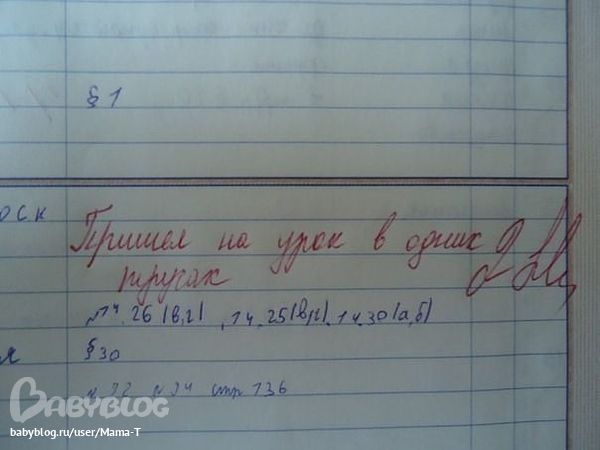 § 1
оск
Пришел на урок в одних 2
трусах
№14.26(в,г), 14.25(в,г), 14.30(а,б)
я § 30
стр 136
BABYBLOG
babyblog.ru/user/Mama-T